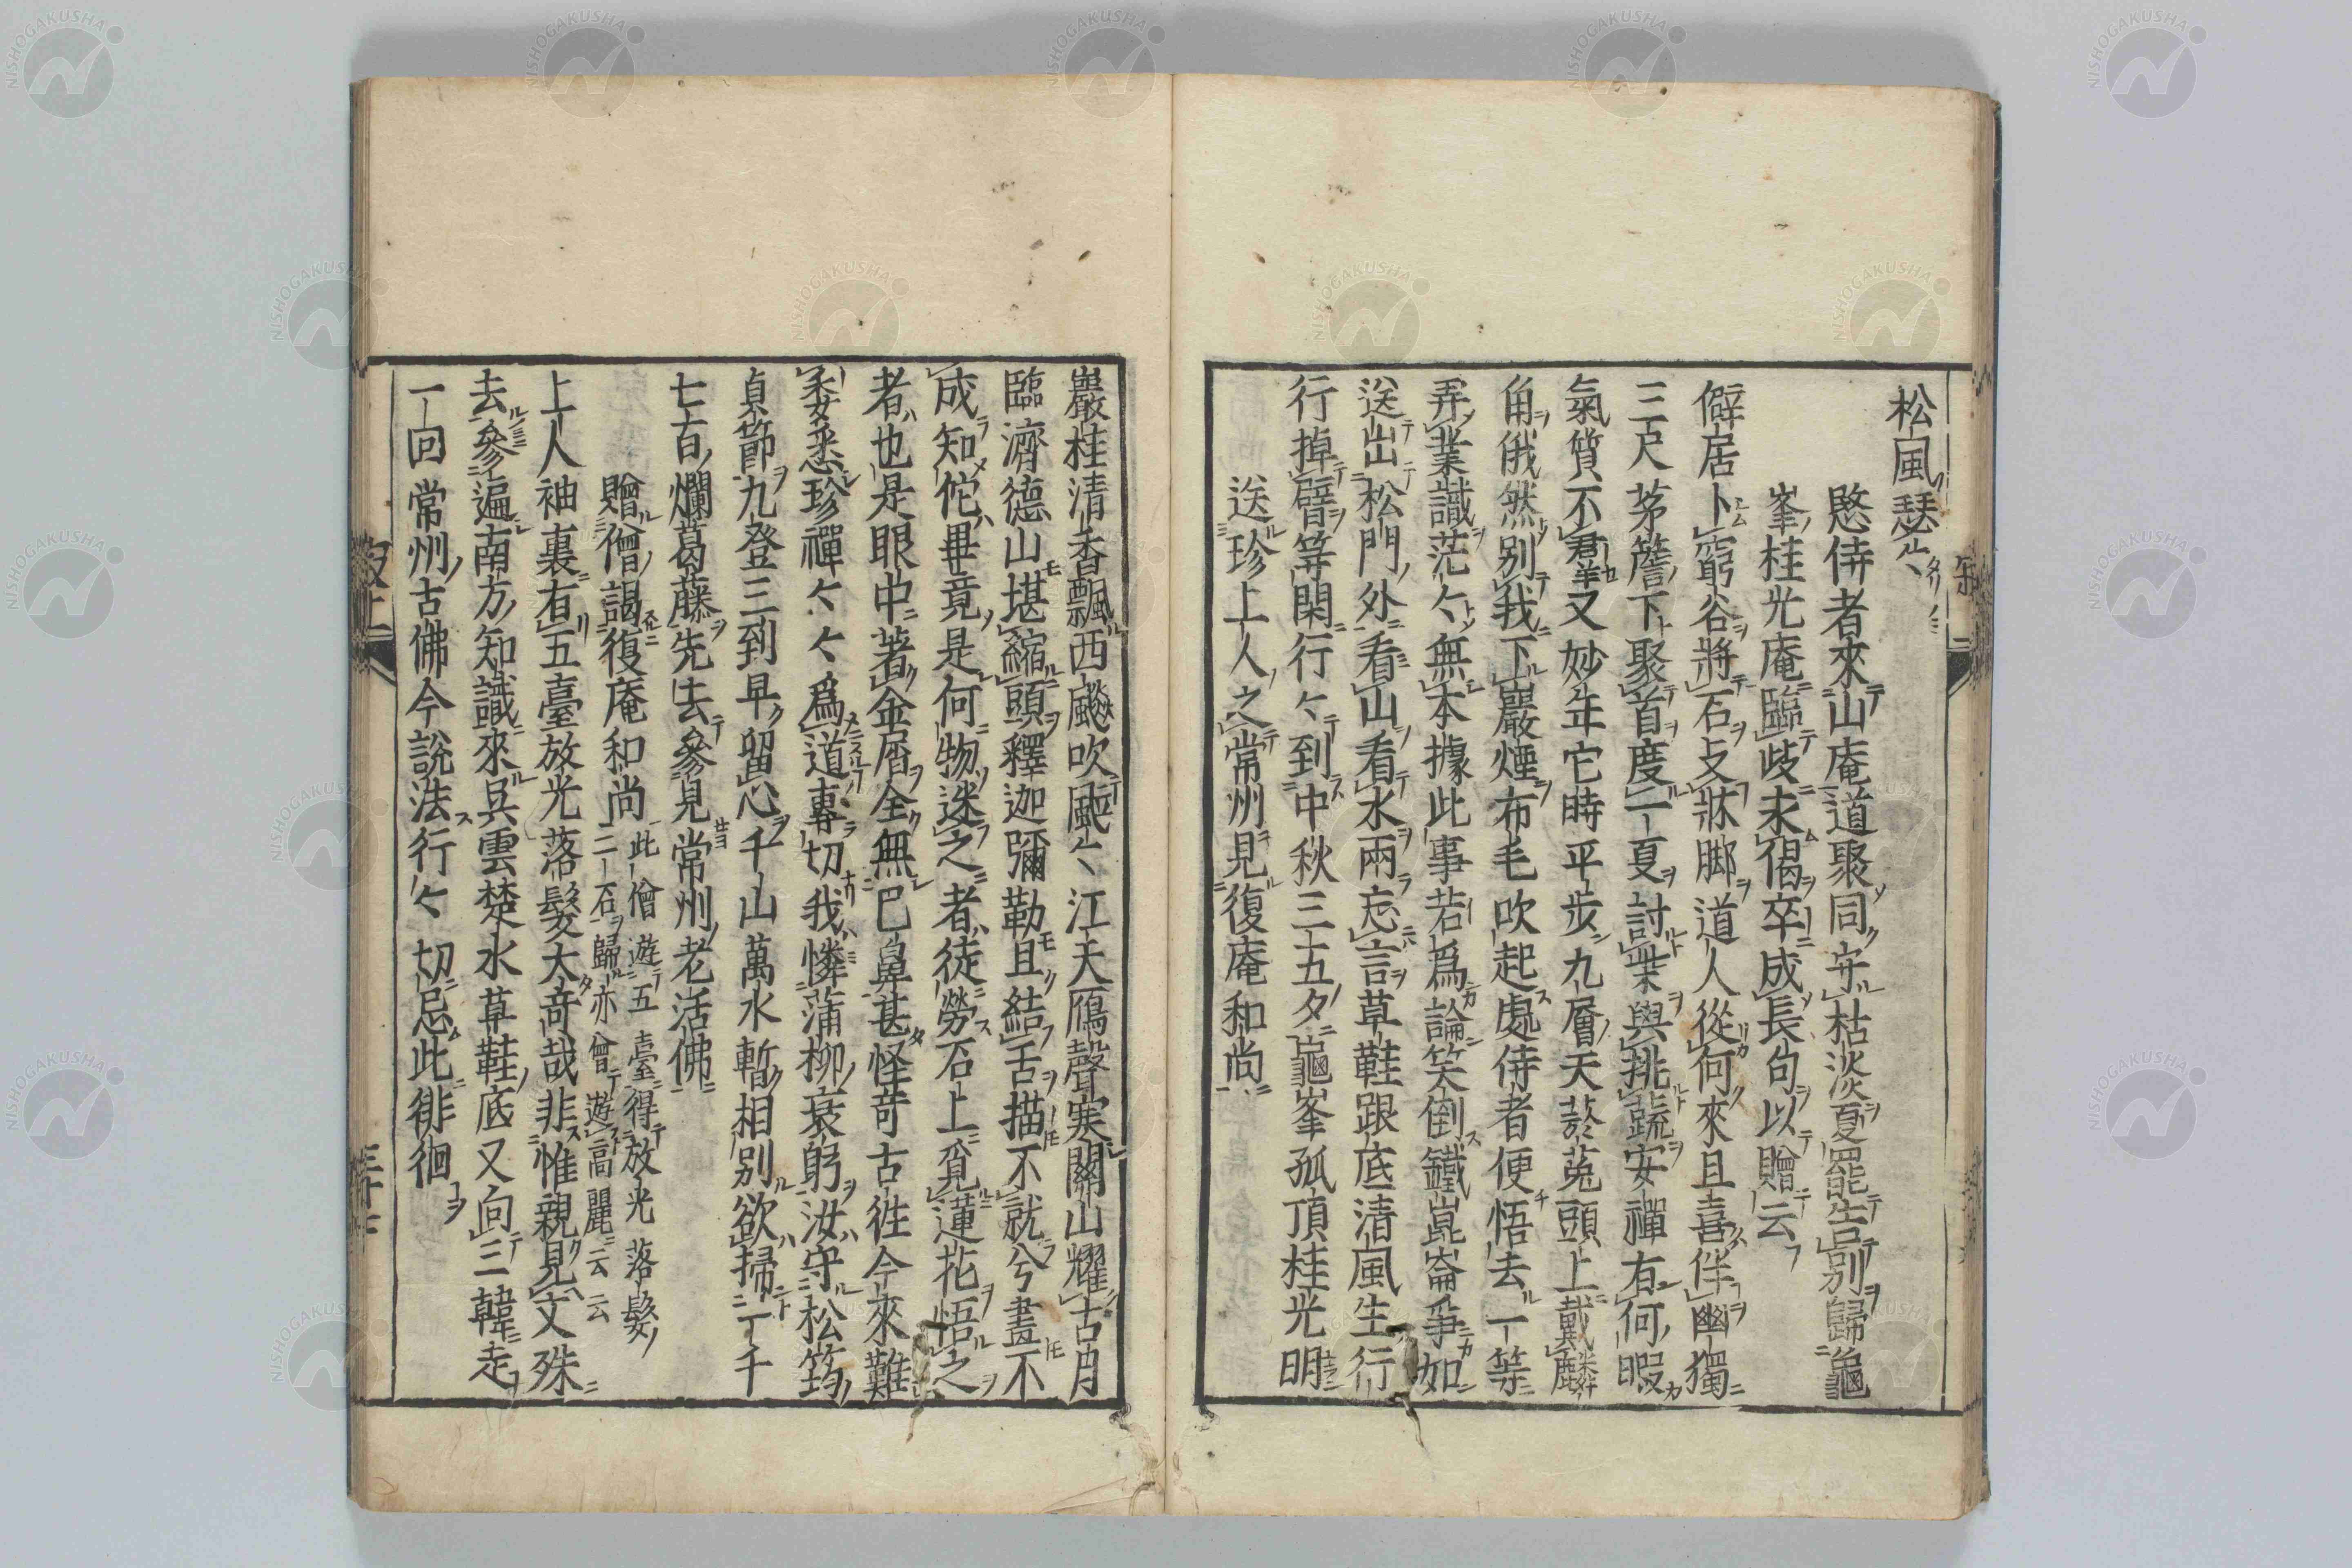 松風瑟〻
愍侍者來山庵道聚同守枯淡夏罷告別歸龜
峯桂光庵臨歧未偈卒成長句以贈云
僻居卜窮谷將石支牀脚道人從何來且喜伴幽獨
三尺茅簷下聚首度一夏討柴與挑蔬安禪有何暇
氣質不群又妙年它時平步九層天菸菟頭上戴麟
角俄然別我下巖煙布毛吹起處侍者便悟去一等
弄業識茫〻無本據此事若爲論笑倒鐵崑崙爭如
送出松門外看山看水兩忘言草鞋跟底清風生行
行掉臂等閑行〻到中秋三五夕龜峯孤頂桂光明
送珍上人之常州見復庵和尚
巖桂清香飄西飈吹風〻江天鴈聲寒關山耀古月
臨濟德山堪縮頭釋迦彌勒且結舌描不就兮畫不
成知佗畢竟是何物迷之者徒勞石上覓蓮花悟之
者也是眼中著金屑全無巴鼻甚怪奇古徃今來難
委悉珍禪〻〻爲道專切我憐蒲柳衰躬汝守松筠
貞節九登三到早留心千山萬水暫相別欲掃一千
七百爛葛藤先去參見常州老活佛
贈僧謁復庵和尚 此僧遊五臺得放光落髮
二石歸亦曾遊高麗云云
上人袖裏有五臺放光落髮太奇哉非惟親見文殊
去參遍南方知識來吳雲楚水草鞋底又向三韓走
一回常州古佛今説法行〻切忌此徘徊
NISHOGAKUSHA